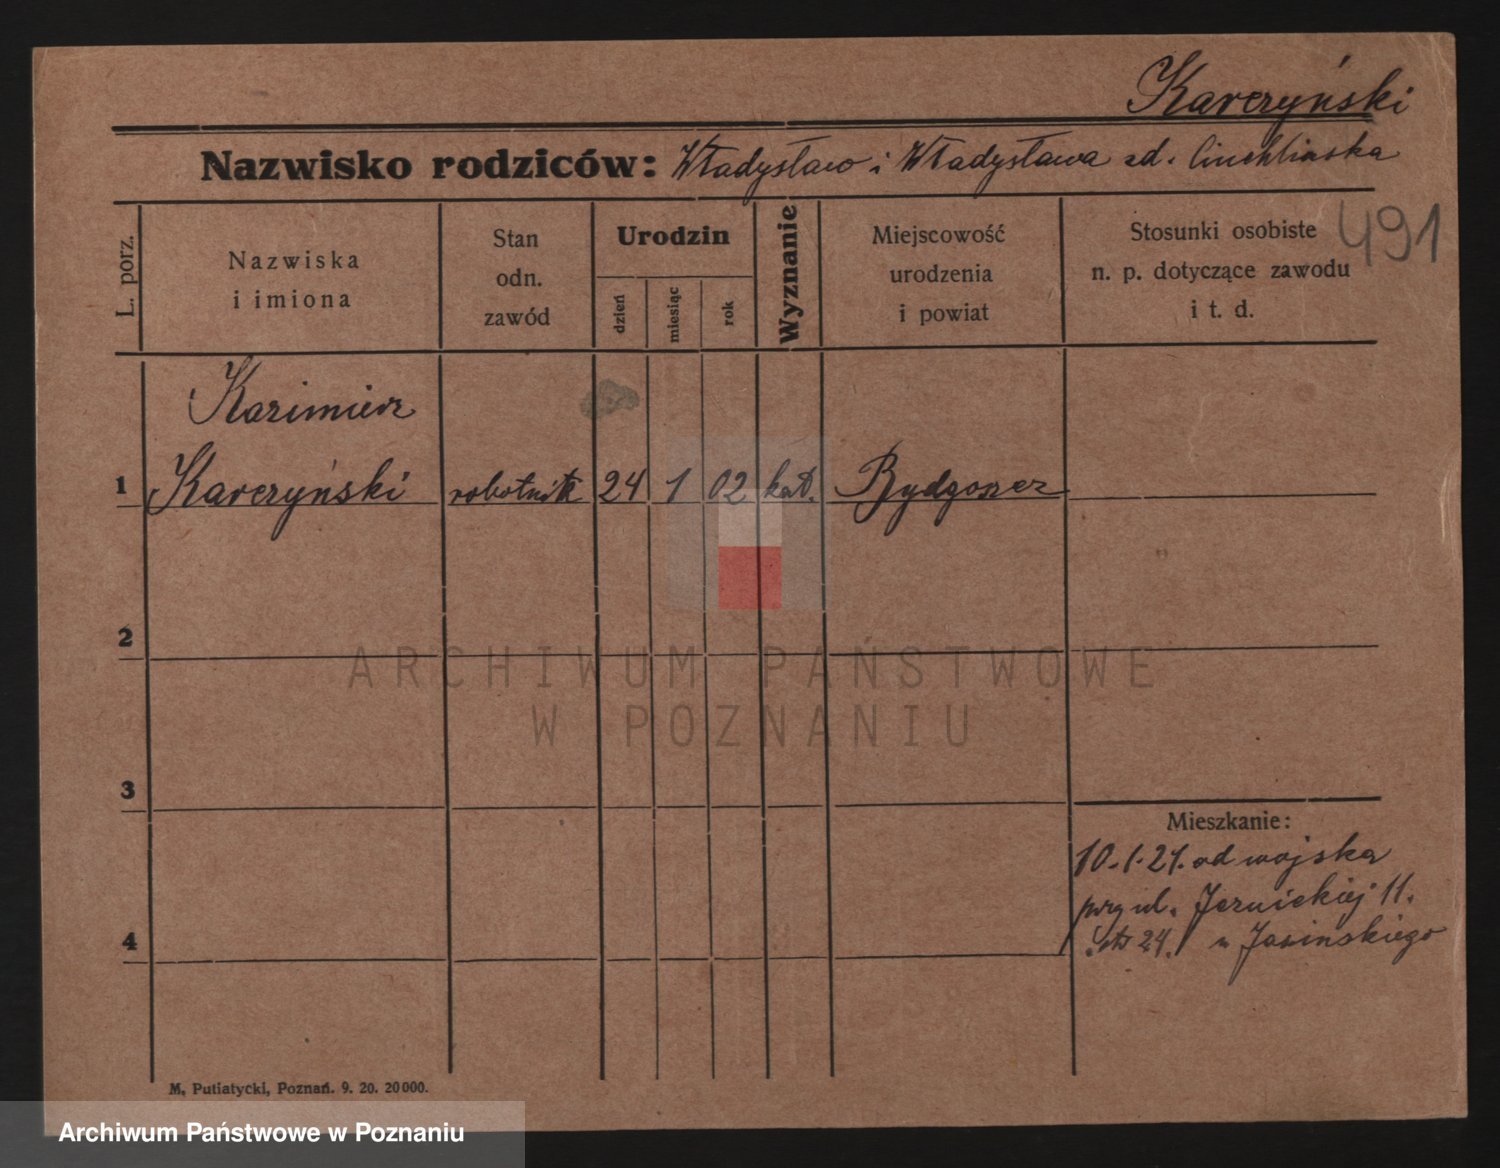 Karczyński
Nazwisko rodziców: Władysław i Władysława zd.
491
L. porz.
Nazwiska
i imiona
Stan
odn.
zawód
Urodzin
dzień
miesiąc
rok
Wyznanie
Miejscowość
urodzenia
i powiat
Stosunki osobiste
n. p. dotyczące zawodu
i t. d.
Kazimierz
1 Karczyński robotnik 24 1 02 kat. Bydgoszcz
2
3
4
Mieszkanie:
10.1.21. od wojska
przy ul. 11.
24. u Jasinskiego
M. Putiatycki, Poznań. 9. 20. 20000.
ARCHIWUM PAŃSTWOWE
W POZNANIU
Archiwum Państwowe w Poznaniu